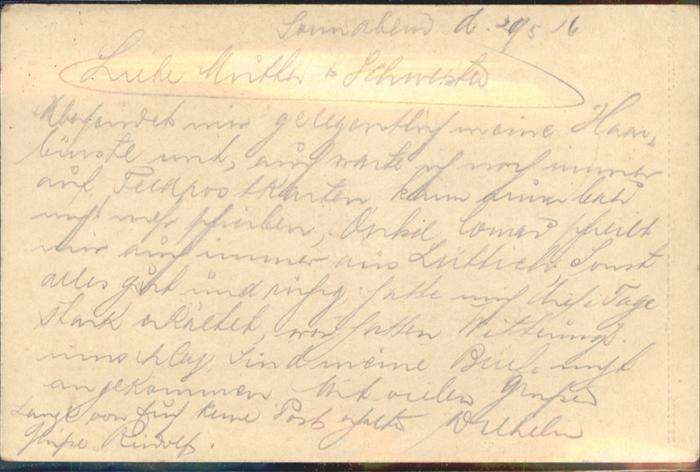 Sonnabend d. 20/5 16
Liebe Mutter & Schwester
mir gelegentlich meine Haar-
bürste mit, auch warte ich noch immer
auf Feldpostkarten, kann bald
nicht mehr schreiben, Onkel schreibt
mir auch immer aus Lüttich. Sonst
alles gut und ruhig. hatte mich diese Tage
stark erkältet, wir hatten Witterungs-
umschlag. Sind meine Briefe nicht
angekommen Mit vielen Grüßen
Lange von Euch keine Post erhalten Wilhelm
Grüße Rudolf.